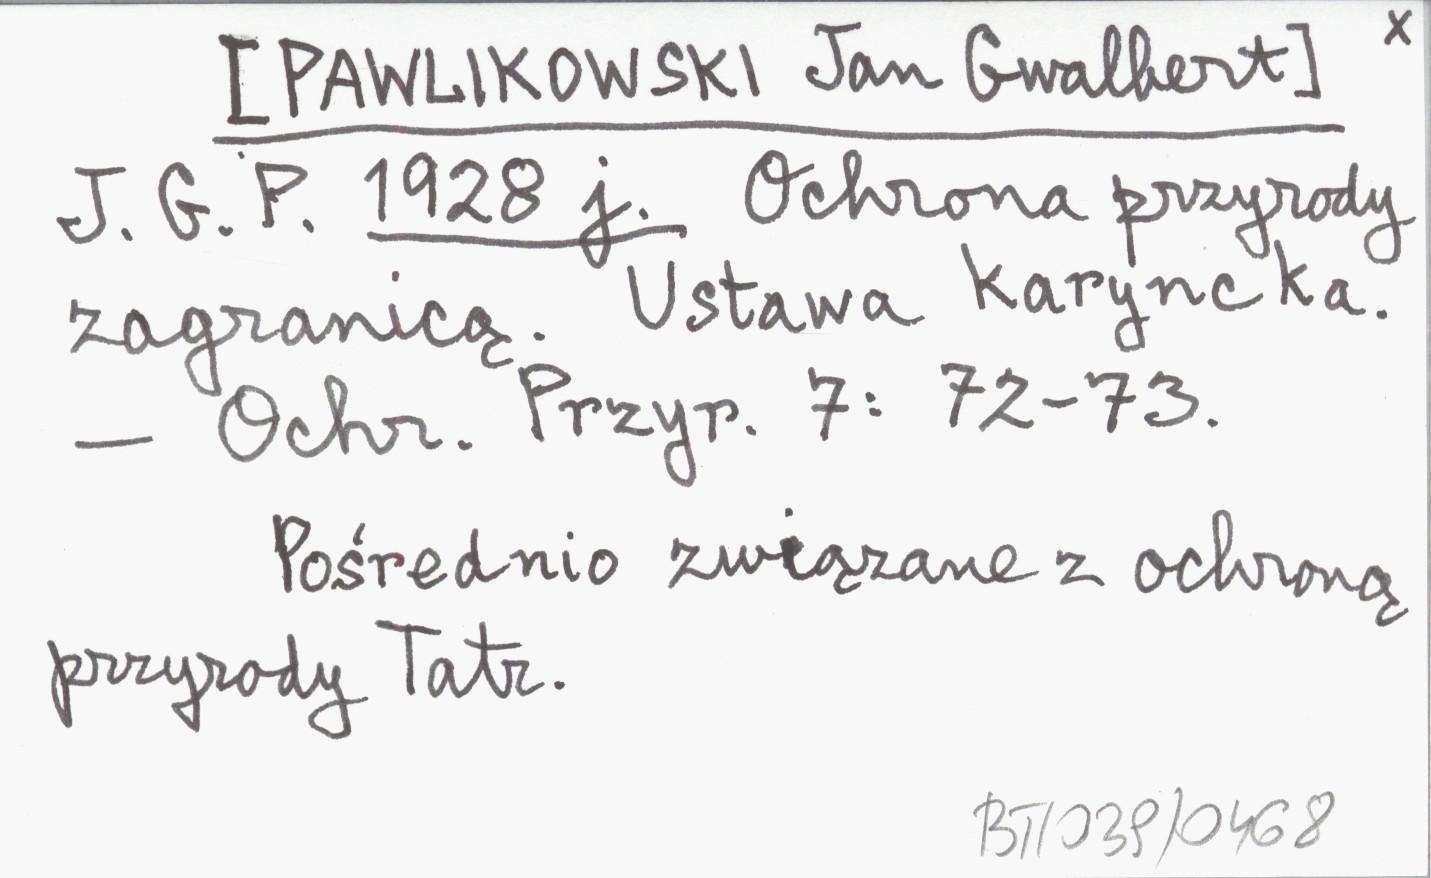 [PAWLIKOWSKI Jan Gwalbert] x
J. G. P. 1928 j. Ochrona przyrody
zagranicą. Ustawa karyncka.
— Ochr. Przyr. 7: 72-73.
Pośrednio związane z ochroną
przyrody Tatr.
BT/039/0468